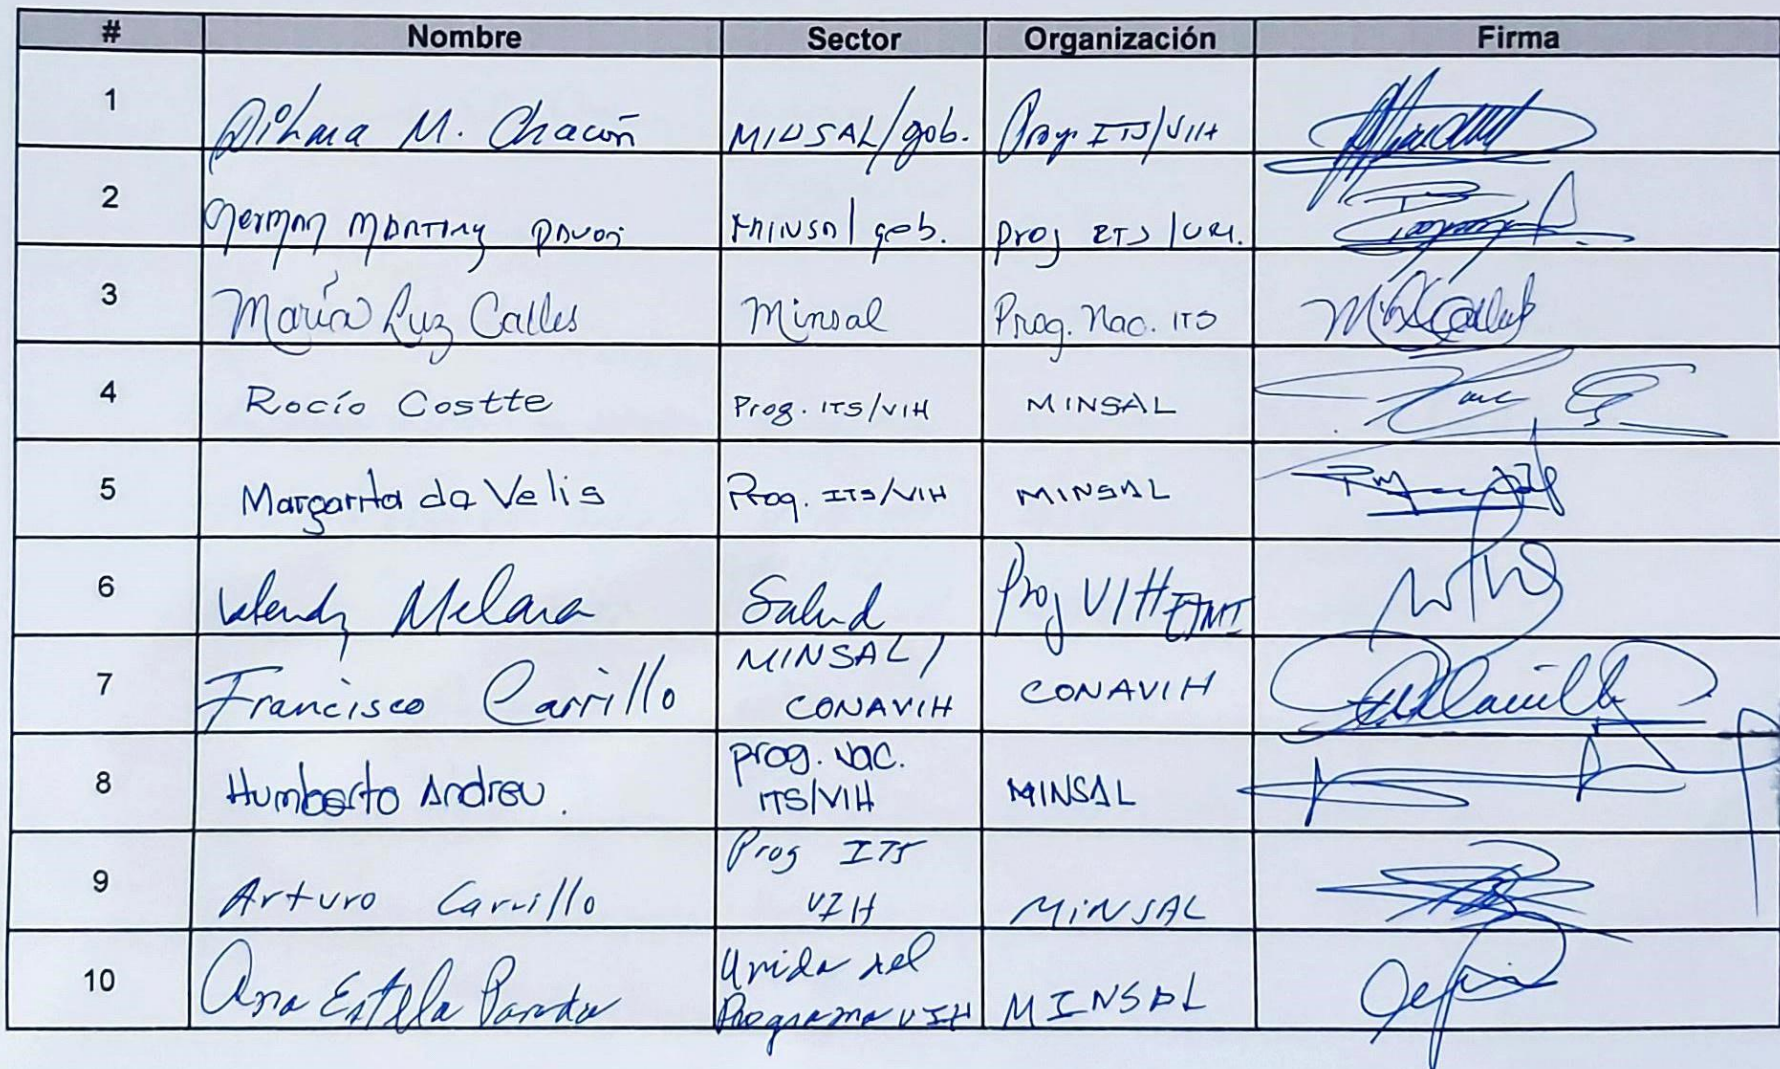 # Nombre Sector Organización Firma
1 Dilma M. Chacón MINSAL/gob. Prog. ITS/VIH
2 German MARTINEZ MINSA/gob. prog ITS
3 María Luz Calles Minsal Prog. Nac. ITS
4 Rocío Costte Prog. ITS/VIH MINSAL
5 Margarita de Velis Prog. ITS/VIH MINSAL
6 Wendy Melara Salud Prog VIH
7 Francisco Carrillo MINSAL/
CONAVIH CONAVIH
8 Humberto Andreu. prog. Nac.
ITS/VIH MINSAL
9 Arturo Carrillo Prog ITS
VIH MINSAL
10 Ana Estela Unida del
Programa VIH MINSAL